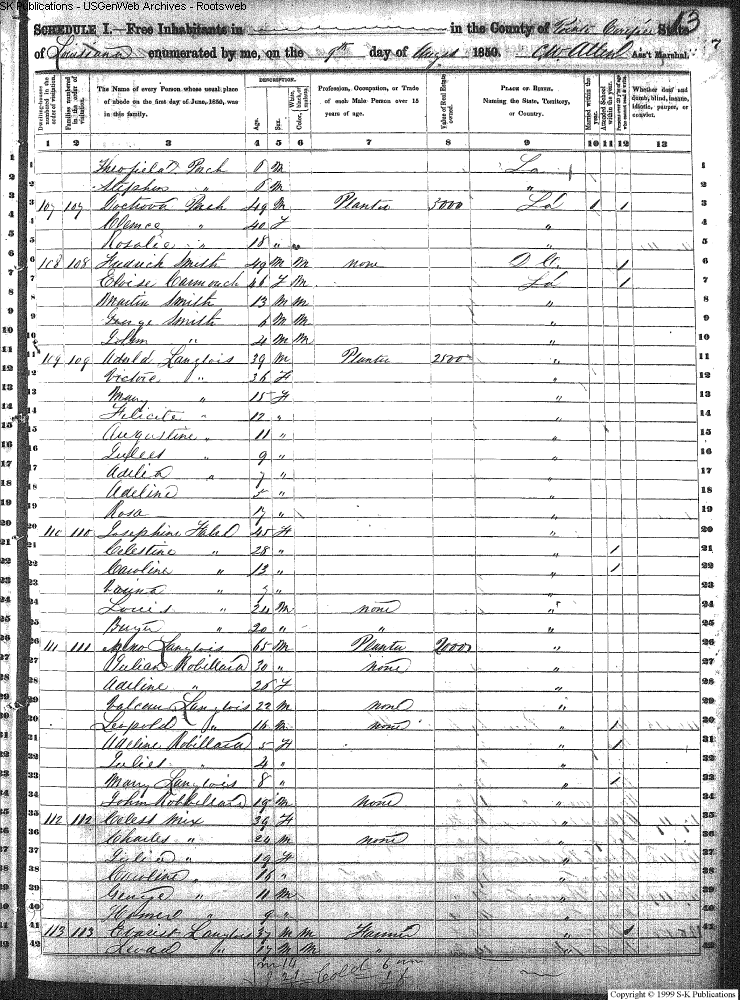 SK Publications - USGenWeb Archives - Rootsweb
13
7
SCHEDULE I.—Free Inhabitants in in the County of Pointe Coupee State
of Louisiana enumerated by me, on the 9th day of August 1850. CW Allen Ass't Marshal.
Dwelling-houses numbered in the order of visitation. Families numbered in the order of visitation. The Name of every Person whose usual place of abode on the first day of June, 1850, was in this family. DESCRIPTION. Age. Sex. Color, White, black, or mulatto. Profession, Occupation, or Trade of each Male Person over 15 years of age. Value of Real Estate owned. PLACE OF BIRTH. Naming the State, Territory, or Country. Married within the year. Attended School within the year. Persons over 20 y'rs of age who cannot read & write. Whether deaf and dumb, blind, insane, idiotic, pauper, or convict.
1 2 3 4 5 6 7 8 9 10 11 12 13
1 Theofield Porch 6 M La 1
2 Stephen " 6 M " 2
3 107 107 49 M Planter 5000 La 1 1 3
4 Clemce " 40 F " 4
5 Rosalie " 18 " " " 5
6 108 108 Smith 49 M M none D.C. 1 6
7 Eloise Carmouch 46 F M La 1 7
8 Martin Smith 13 M M " 8
9 George Smith 6 M M " 9
10 John " 4 M M " 10
11 109 109 Langlois 39 M Planter 2500 " 11
12 Victore " 36 F " 12
13 Mary " 15 F " 13
14 Felicite " 12 " " 14
15 Augustine " 11 " " 15
16 " 9 " " 16
17 Adelia " 7 " " 17
18 Adeline " " 18
19 Rosa 7 " " 19
20 110 110 Josephine 45 F " 20
21 Celestine " 28 " " 1 21
22 Caroline " 13 " " 1 22
23 " " " 23
24 Louis " 24 M none " 24
25 " 20 " " " 25
26 111 111 Langlois 65 M Planter 2000 " 26
27 Julian Robillard 30 " none " 27
28 Adeline " 26 F " 28
29 Langlois 22 M none " 29
30 Leopold " 16 M none " 1 30
31 Adeline Robillard 5 F " 1 31
32 Juliet " 4 " " 32
33 Mary Langlois 8 " " 1 33
34 John Robbillard 19 M none " 34
35 112 112 Celest Mix 39 F " 35
36 Charles " 24 M none " 36
37 " 19 F " 37
38 Caroline " 16 " " 38
39 George " 11 M " 39
40 Homer " 9 " " 40
41 113 113 Evarist Langlois 37 M M Farmer " 1 41
42 " 37 M M " " 42
m 14 Cold 6 m
Copyright © 1999 S-K Publications